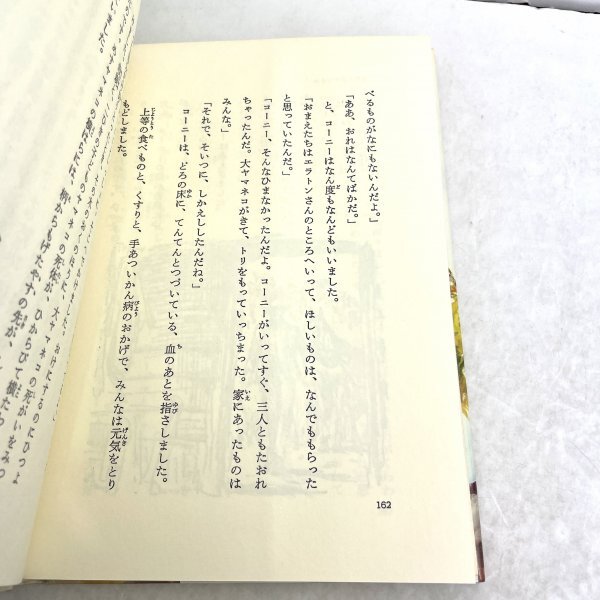 べるものがなにもないんだよ。」
「ああ、おれはなんてばかだ。」
と、コーニーはなん度もなんどもいいました。
「おまえたちはエラトンさんのところへいって、ほしいものは、なんでももらった
と思っていたんだ。」
「コーニー、そんなひまなかったんだよ。コーニーがいってすぐ、三人ともたおれ
ちゃったんだ。大ヤマネコがきて、トリをもっていっちまった。家にあったものは
みんな。」
「それで、そいつに、しかえししたんだね。」
コーニーは、どろの床に、てんてんとつづいている、血のあとを指さしました。
上等の食べものと、くすりと、手あついかん病のおかげで、みんなは元気をとり
もどしました。
162
大ヤマネコの死がいをみつ
ヤマネコの死体が、ひからびて横たわっ
柄からもげたやすの先が、